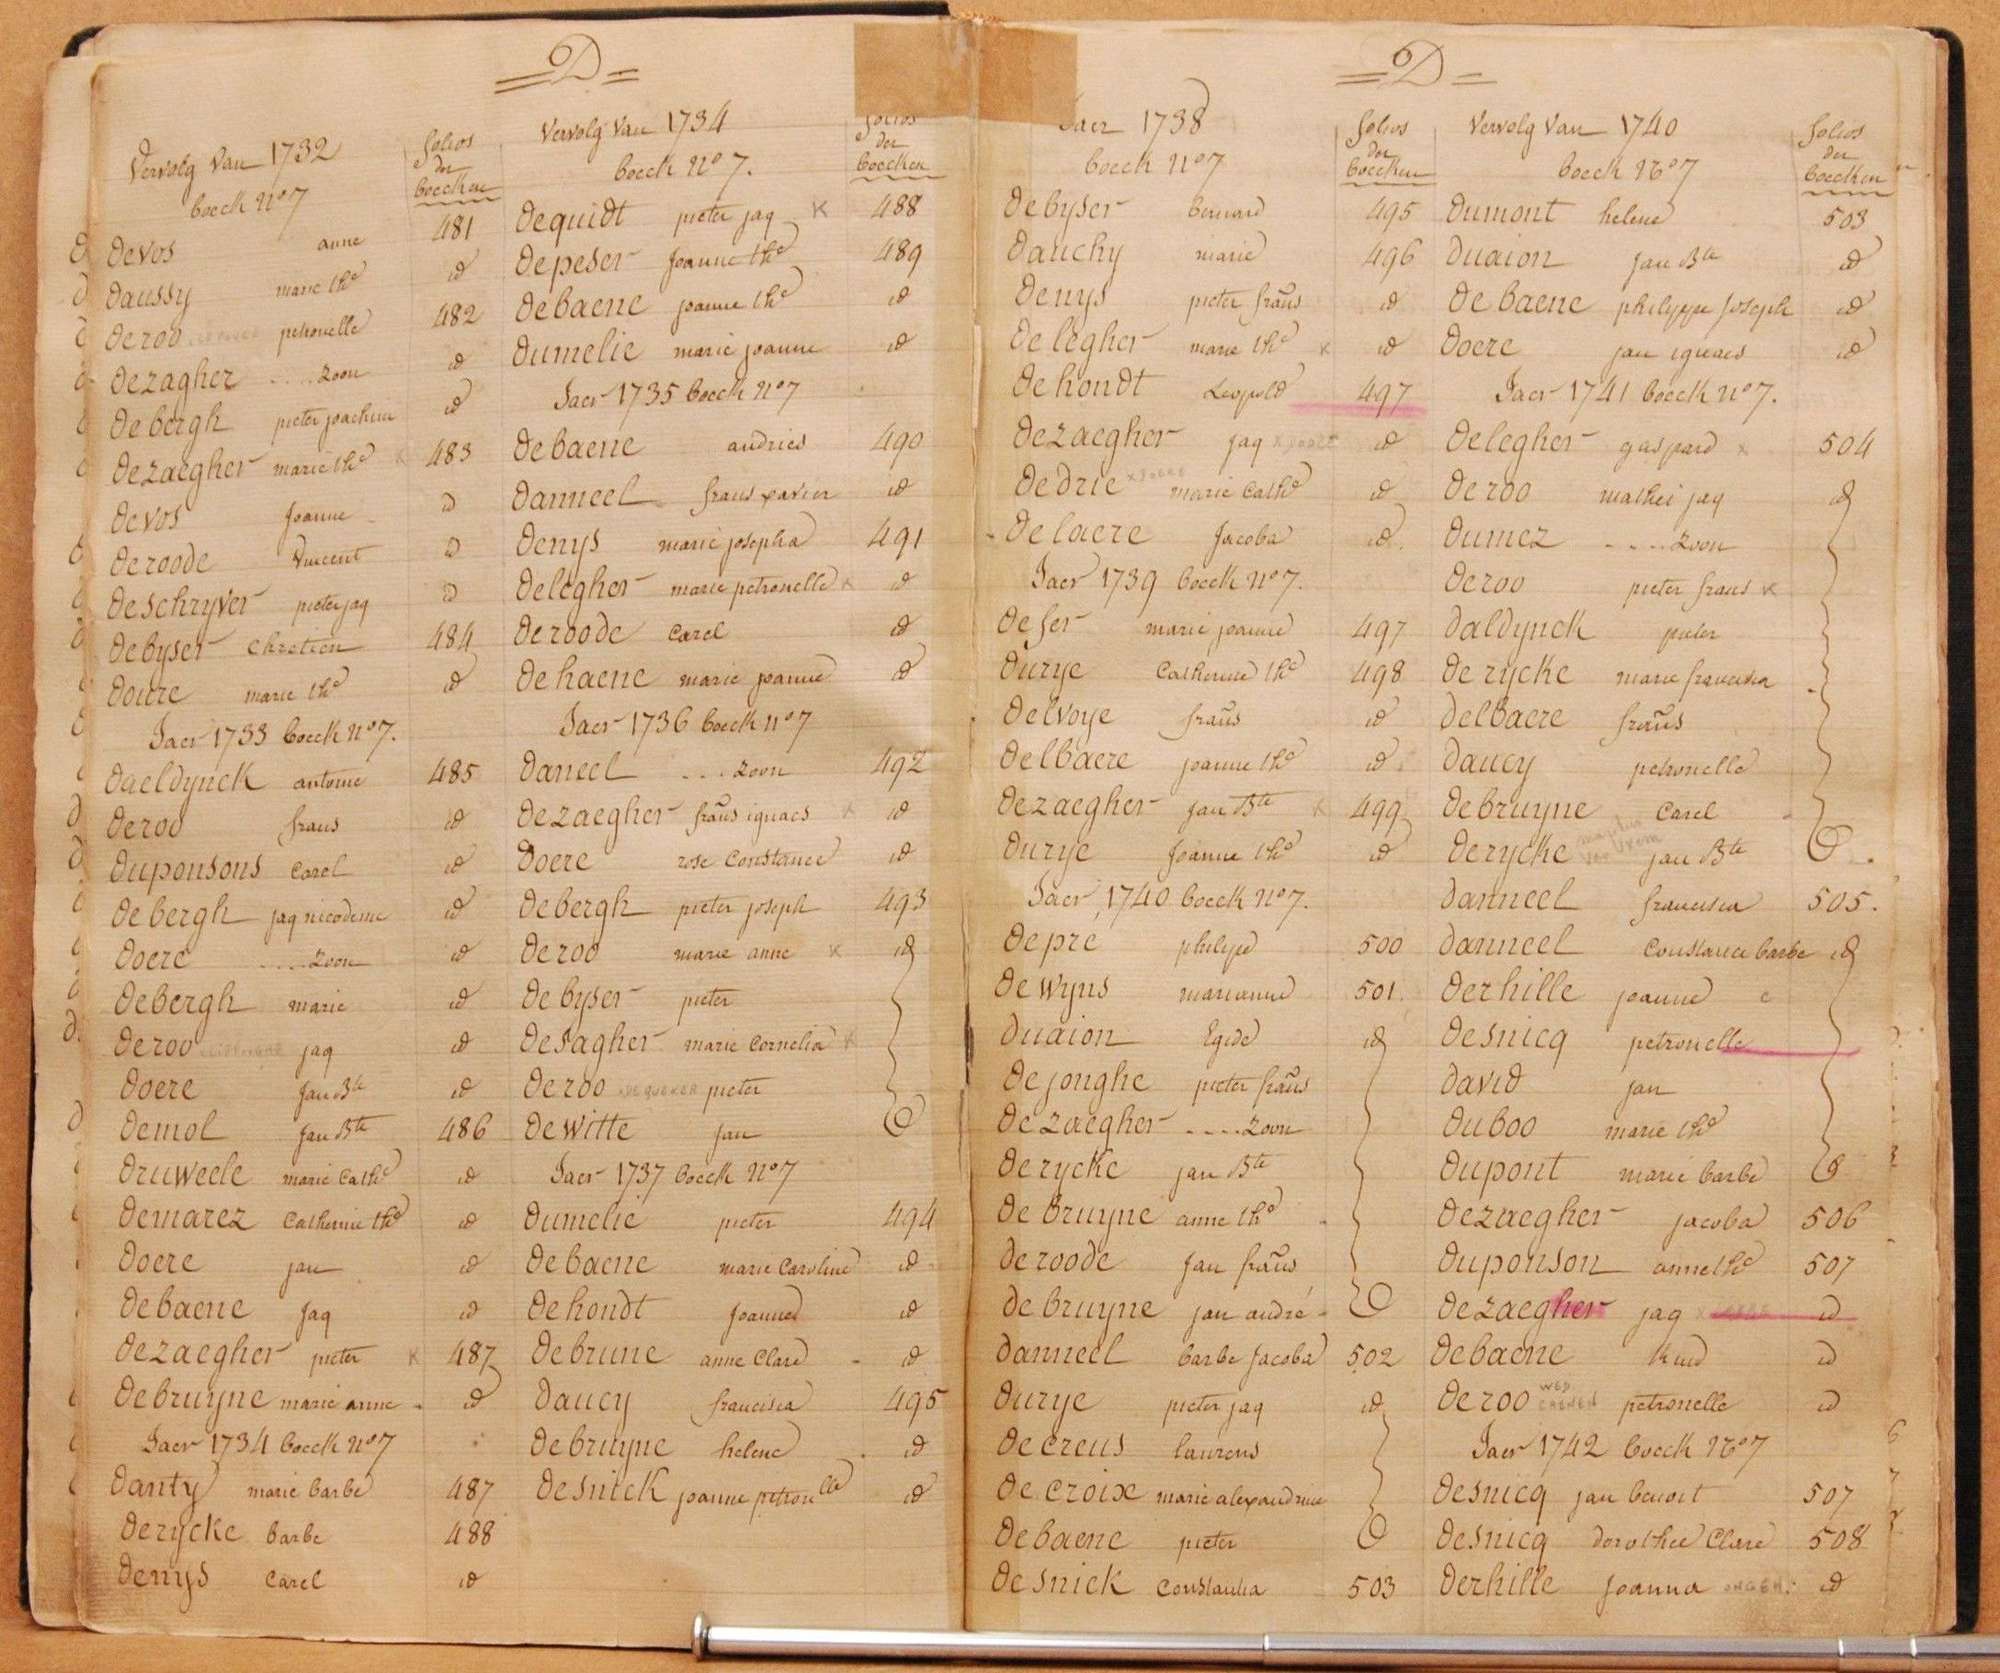 D
Vervolg Van 1732
boeck No 7
folios
der
boecken
Devos anne 481
Daussy marie the id
Deroo petronelle 482
Dezagher ....zoon id
Debergh pieter joachim id
Dezaegher marie the x 483
Devos Joanne id
Deroode Vincent id
Deschryver pieter jaq id
Debyser Chretien 484
Doure marie the id
Jaer 1733 boeck No 7.
Daeldynck antoine 485
Deroo frans id
Duponsons Carel id
Debergh jaq nicodeme id
Doere ....zoon id
Debergh marie id
Deroo jaq id
Doere Jan Bte id
Demol Jan Bte 486
Druweele marie Cathe id
Demarez Catherine the id
Doere jan id
Debaene Jaq id
Dezaegher pieter x 487
Debruyne marie anne id
Jaer 1734 boeck No 7
Danty marie barbe 487
Derycke barbe 488
Denys Carel id
Vervolg Van 1734
boeck No 7.
folios
der
boecken
Dequidt pieter jaq x 488
Depeser Joanne the 489
Debaene joanne the id
Dumelie marie joanne id
Jaer 1735 boeck No 7
Debaene andries 490
Danneel frans xavier id
Denys marie josepha 491
Delegher marie petronelle x id
Deroode Carel id
Dehaene marie joanne id
Jaer 1736 boeck No 7
Daneel ....zoon 492
Dezaegher frans ignaes x id
Doere rose Constance id
Debergh pieter joseph 493
Deroo marie anne x id
Debyser pieter
Desagher marie Cornelia x
Deroo x DE QUEKER pieter
Dewitte jan
Jaer 1737 boeck No 7
Dumelie pieter 494
Debaene marie Caroline id
Dehondt Joanne id
Debrune anne Clare id
Daucy francisca 495
Debruyne helene id
Desnick joanne petronlle id
D
Jaer 1738
boeck No 7
folios
der
boecken
Debyser bernard 495
Dauchy marie 496
Denys pieter frans id
Delegher marie the x id
Dehondt Leopold 497
Dezaegher jaq id
Dedrie marie Cathe id
Delaere Jacoba id
Jaer 1739 boeck No 7.
Deser marie joanne 497
Durye Catherine the 498
Delvoye frans id
Delbaere joanne the id
Dezaegher jan Bte x 499
Durye Joanne the id
Jaer 1740 boeck No 7.
Depre philype 500
Dewyns marianne 501
Duaion Egide id
Dejonghe pieter frans
Dezaegher ....zoon
Derycke jan Bte
Debruyne anne the
Deroode Jan frans
Debruyne jan andré
Danneel barbe Jacoba 502
Durye pieter jaq id
Decreus laurens
Decroix marie alexandrine
Debaene pieter
Desnick Constantia 503
Vervolg Van 1740
boeck No 7
folios
der
boecken
Dumont helene 503
Duaion Jan Bte id
Debaene philyppe Joseph id
Doere jan ignaes id
Jaer 1741 boeck No 7.
Delegher gaspard x 504
Deroo mathei jaq id
Dumez ....zoon
Deroo pieter frans x
Daldynck pieter
Derycke marie francisca
Delbaere frans
Daucy petronelle
Debruyne Carel
Derycke jan Bte
Danneel francisca 505.
Danneel Constance barbe id
Derhille joanne
Desnicq petronelle
David jan
Duboo marie the
Dupont marie barbe
Dezaegher jacoba 506
Duponson anne the 507
Dezaegher jaq id
Debaene Kind id
Deroo WED petronelle id
Jaer 1742 boeck No 7
Desnicq jan benoit 507
Desnicq dorothee Clare 508
Derhille Joanna ONGEH. id